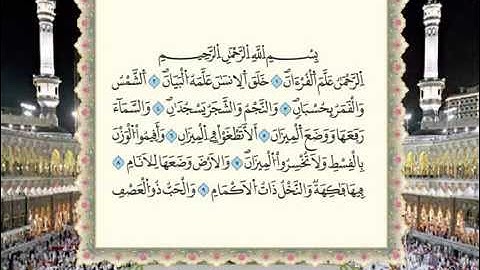 بِسْمِ اللَّهِ الرَّحْمَٰنِ الرَّحِيمِ
الرَّحْمَٰنُ عَلَّمَ الْقُرْءَانَ ١ خَلَقَ الْإِنسَٰنَ عَلَّمَهُ الْبَيَانَ ٢ الشَّمْسُ
وَالْقَمَرُ بِحُسْبَانٍ ٣ وَالنَّجْمُ وَالشَّجَرُ يَسْجُدَانِ ٤ وَالسَّمَاءَ
رَفَعَهَا وَوَضَعَ الْمِيزَانَ ٥ أَلَّا تَطْغَوْا فِي الْمِيزَانِ ٦ وَأَقِيمُوا الْوَزْنَ
بِالْقِسْطِ وَلَا تُخْسِرُوا الْمِيزَانَ ٧ وَالْأَرْضَ وَضَعَهَا لِلْأَنَامِ ٨
فِيهَا فَٰكِهَةٌ وَالنَّخْلُ ذَاتُ الْأَكْمَامِ ٩ وَالْحَبُّ ذُو الْعَصْفِ